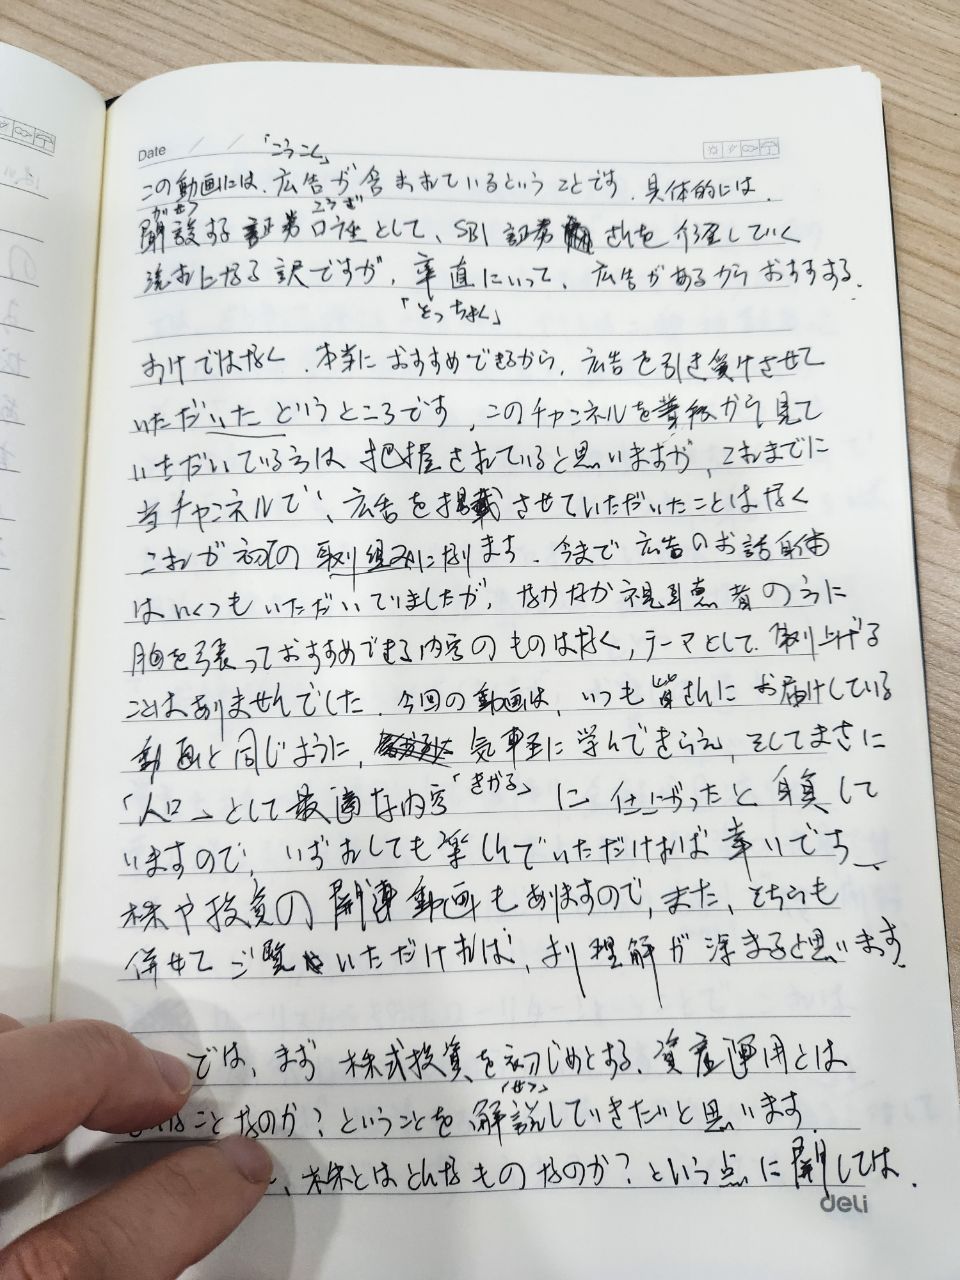 Date / /
「こうこく」
この動画には、広告が含まれているということです。具体的には、
かせつ こうざ
開設する証券口座として、SBI証券さんを介在していく
流れになる訳ですが、率直にいって、広告があるからおすすめする
「そっちょく」
わけではなく、本当におすすめできるから、広告を引き受けさせて
いただいたというところです、このチャンネルを普段から見て
いただいている方は把握されていると思いますが、これまでに
当チャンネルで、広告を掲載させていただいたことはなく
これが初めての取り組みになります。今まで広告のお話自体
はいくつもいただいていましたが、なかなか視聴者の方に
胸を張っておすすめできる内容のものはなく、テーマとして取り上げる
ことはありませんでした。今回の動画は、いつも皆さんにお届けしている
動画と同じように、気軽に学んでもらえ、そしてまさに
「人口」として最適な内容「きがる」に仕上がったと自負して
いますので、いずれしても楽しんでいただければ幸いです、
株や投資の関連動画もありますので、また、そちらも
併せてご覧いただければ、より理解が深まると思います。
では、まず株式投資を初じめとする、資産運用とは
「せつ」
ことなのか?ということを解説していきたいと思います。
、株とはどんなものなのか?という点に関しては、
deli